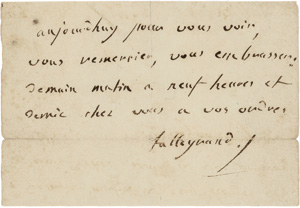 anjourdhuy pour vous voir,
vous remercier, vous embrasser.
demain matin a neuf heures et
demie chez vous a vos ordres
talleyrand.